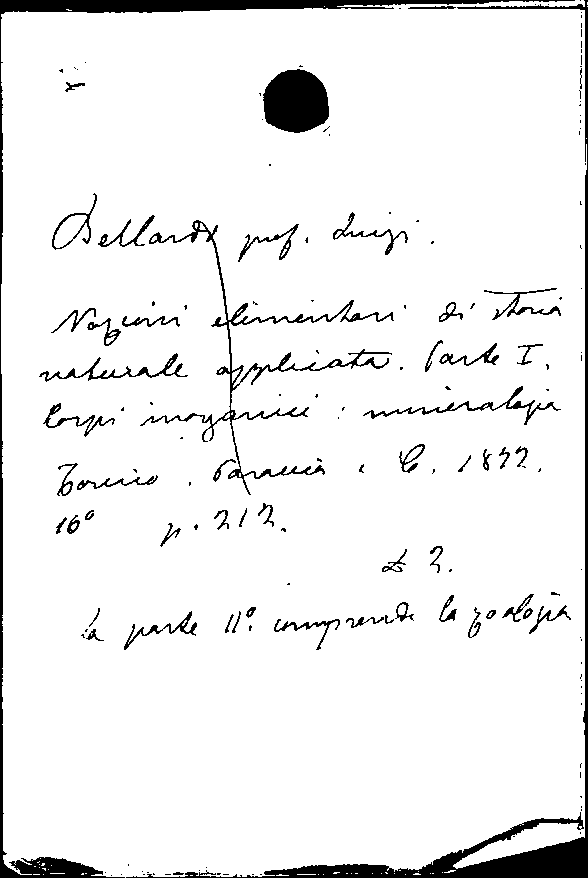 Bellardi prof. Luigi.
Nozioni elementari di storia
naturale applicata. Parte I.
Corpi inorganici: mineralogia
Torino. Paravia e C. 1877.
16° p. 212.
L 2.
La parte II°. comprende la zoologia